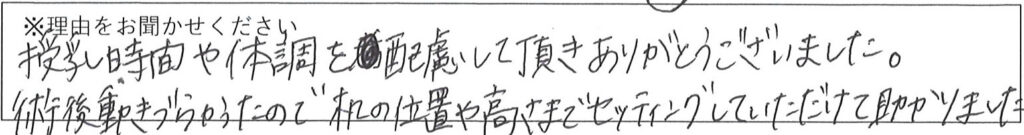 ※理由をお聞かせください
授乳時間や体調を配慮して頂きありがとうございました。
術後動きづらかったので机の位置や高さまでセッティングしていただけて助かりました